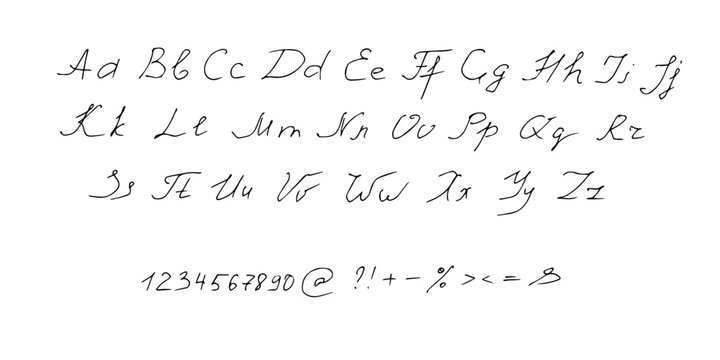 Aa Bb Cc Dd Ee Ff Gg Hh Ii Jj
Kk Ll Mm Nn Oo Pp Qq Rr
Ss Tt Uu Vv Ww Xx Yy Zz
1234567890@ ?!+-%><=